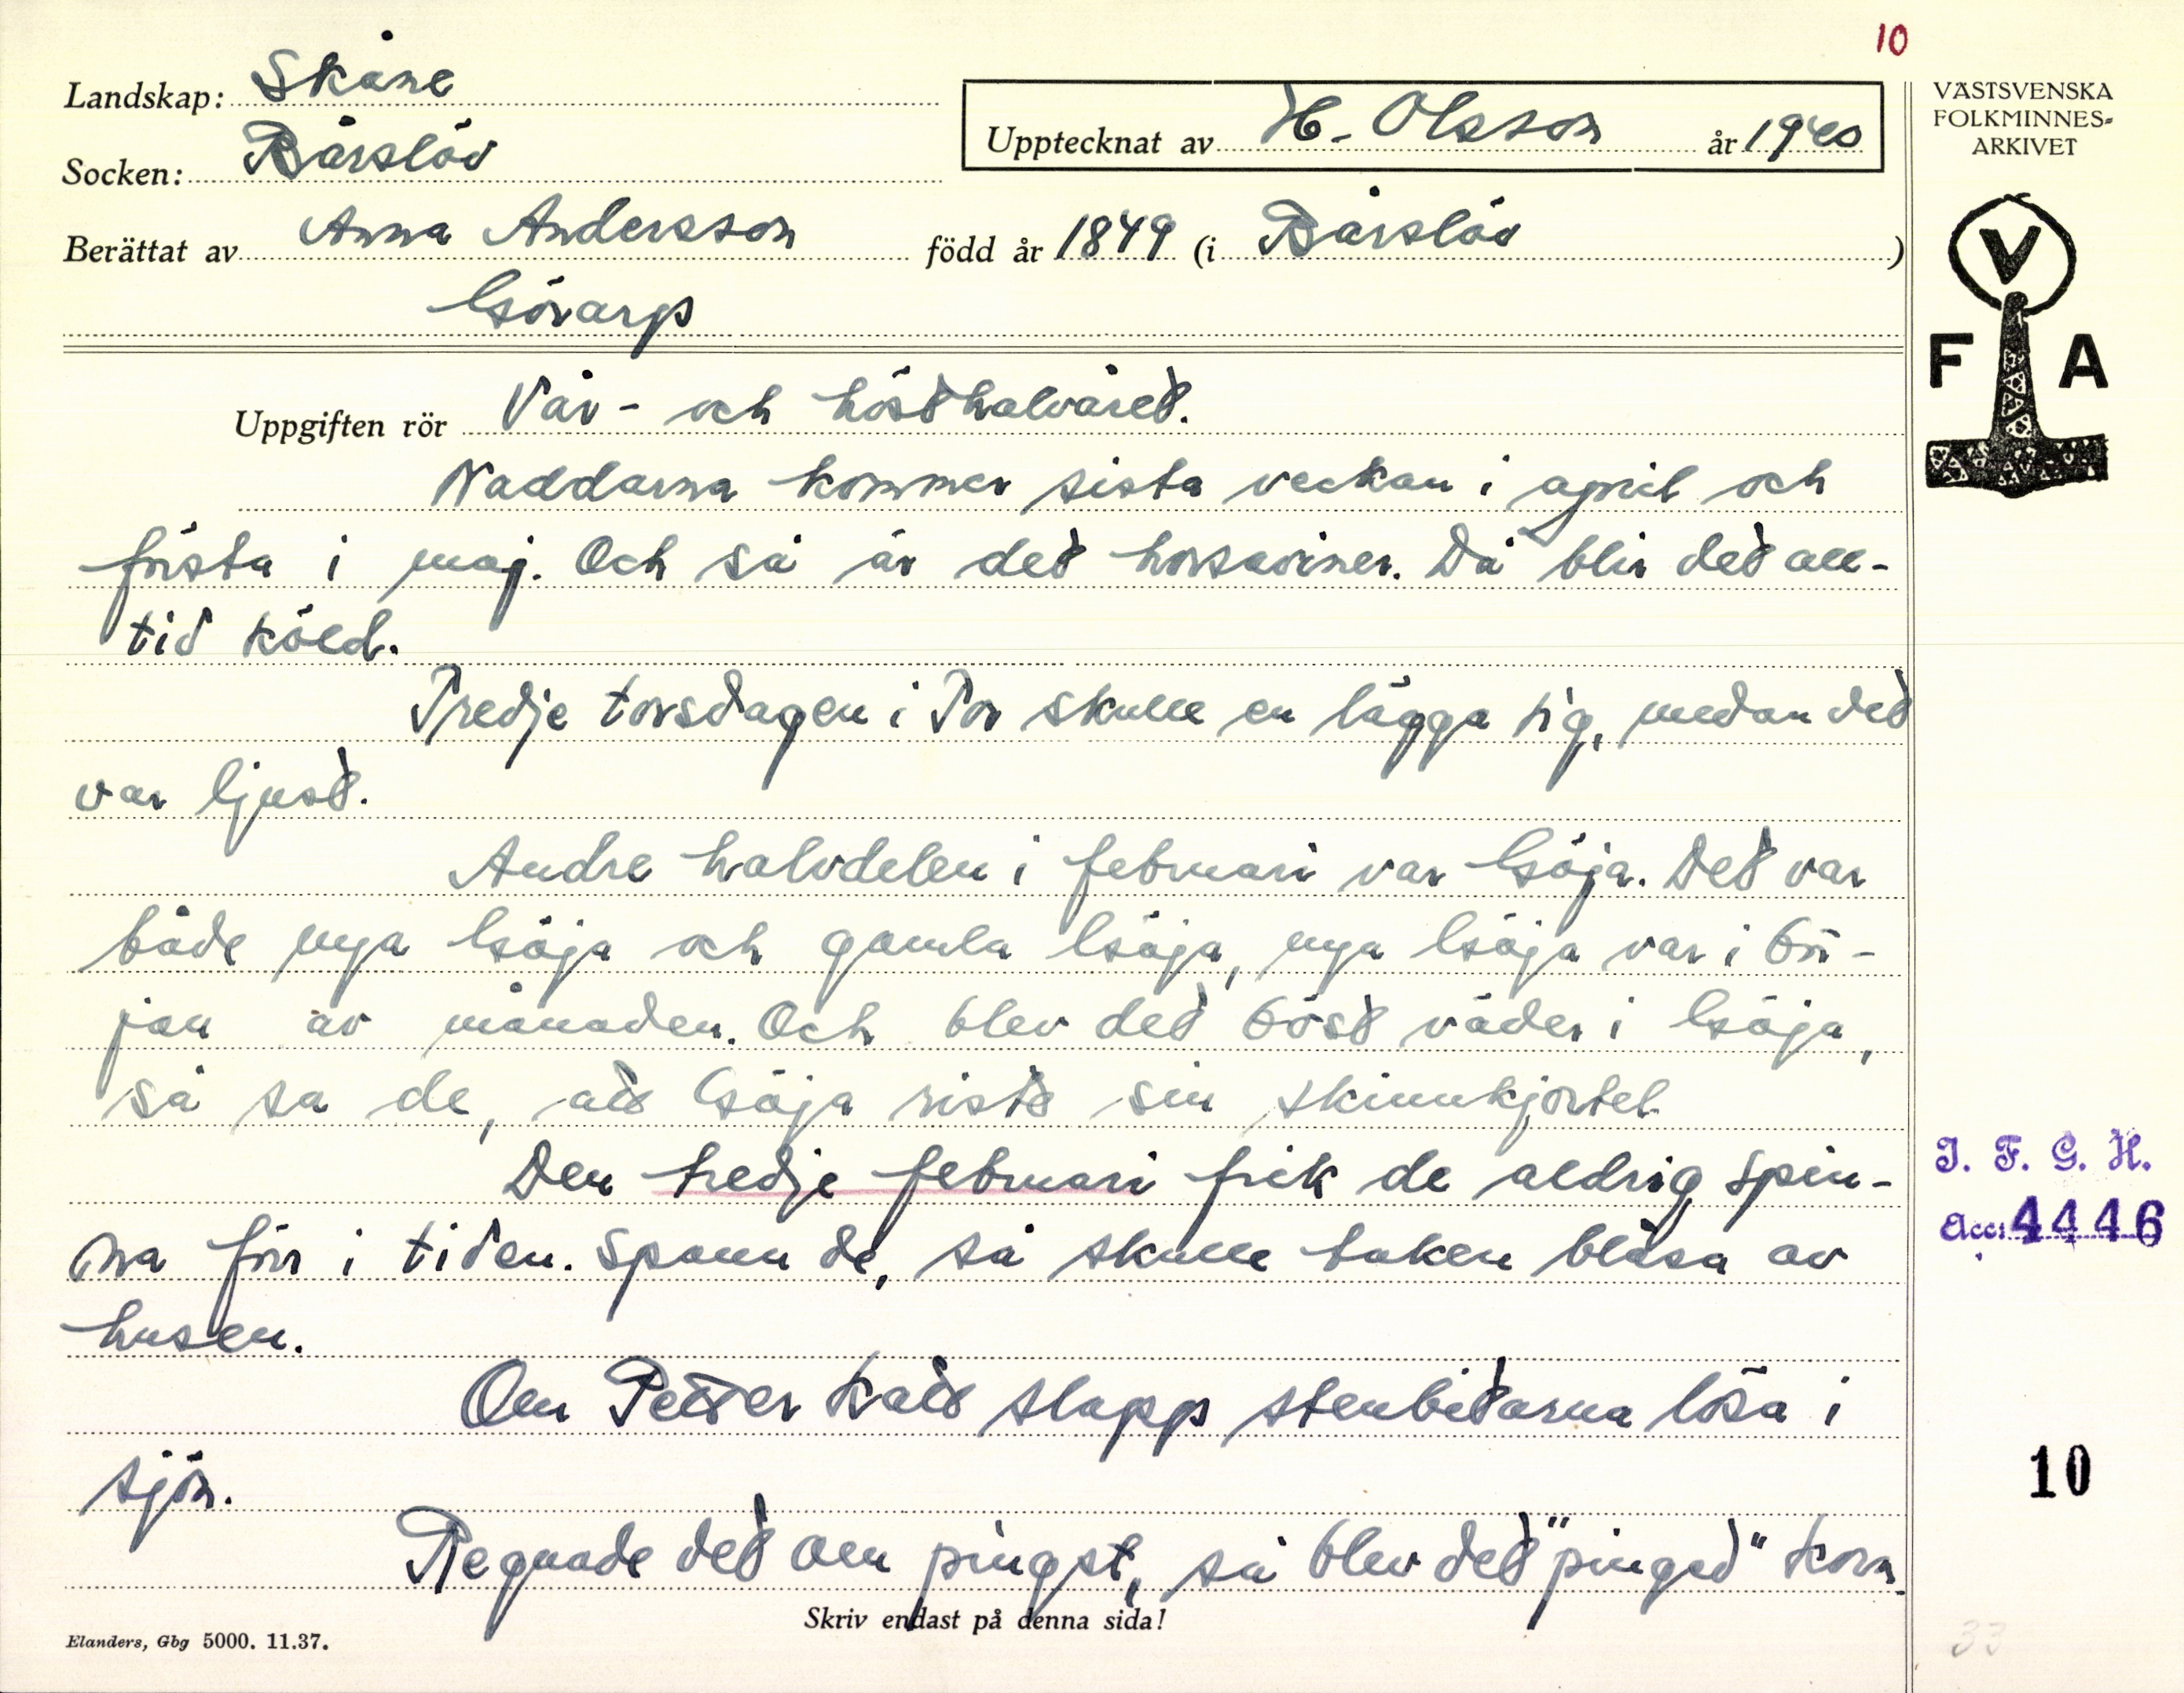 10
Landskap: Skåne
Upptecknat av H. Olsson år 1940
VÄSTSVENSKA
FOLKMINNES-
ARKIVET
Socken: Bårslöv
Berättat av Anna Andersson född år 1849 (i Bårslöv)
Görarp
V
F A
Uppgiften rör Vår- och hösthalvåret.
Naddarna kommer sista veckan i april och
första i maj. Och så är det horsaviner. Då blir det all-
tid köld.
Tredje torsdagen i Tor skulle en lägga sig, medan det
var ljust.
Andre halvdelen i februari var Göja. Det var
både nya Göja och gamla Göja, nya Göja var i bör-
jan av månaden. Och blev detböst väder i Göja,
så sa de, att Göja ristt sin skinnkjortel
Den tredje februari fick de aldrig spin-
na förr i tiden. Spann de, så skulle taken blåsa av
husen.
Om Petter Katt slapp stenbitarna lösa i
sjön.
Regnade det om pingst, så blev det "pinged" korn.
I. F. G. H.
Acc: 4446
10
Skriv endast på denna sida!
Elanders, Gbg 5000. 11.37.
33